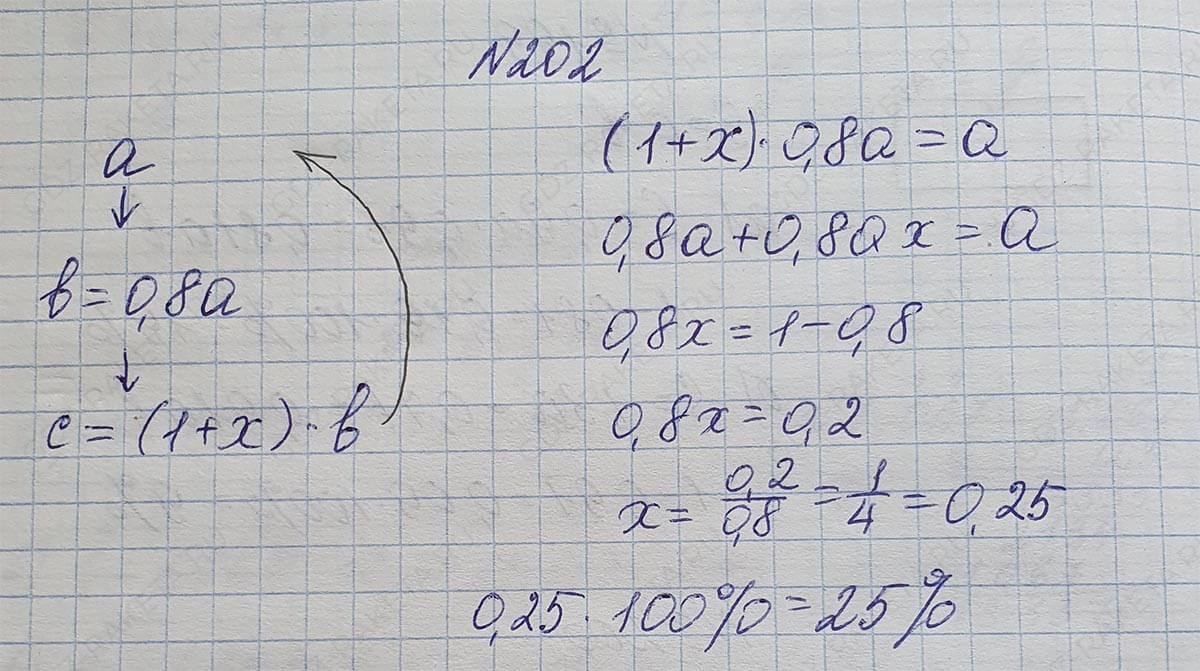 N202
a
↓
в = 0,8a
↓
c = (1+x)·в
(1+x)·0,8a = a
0,8a+0,8ax = a
0,8x = 1-0,8
0,8x = 0,2
x = 0,2/0,8 = 1/4 = 0,25
0,25 · 100% = 25%